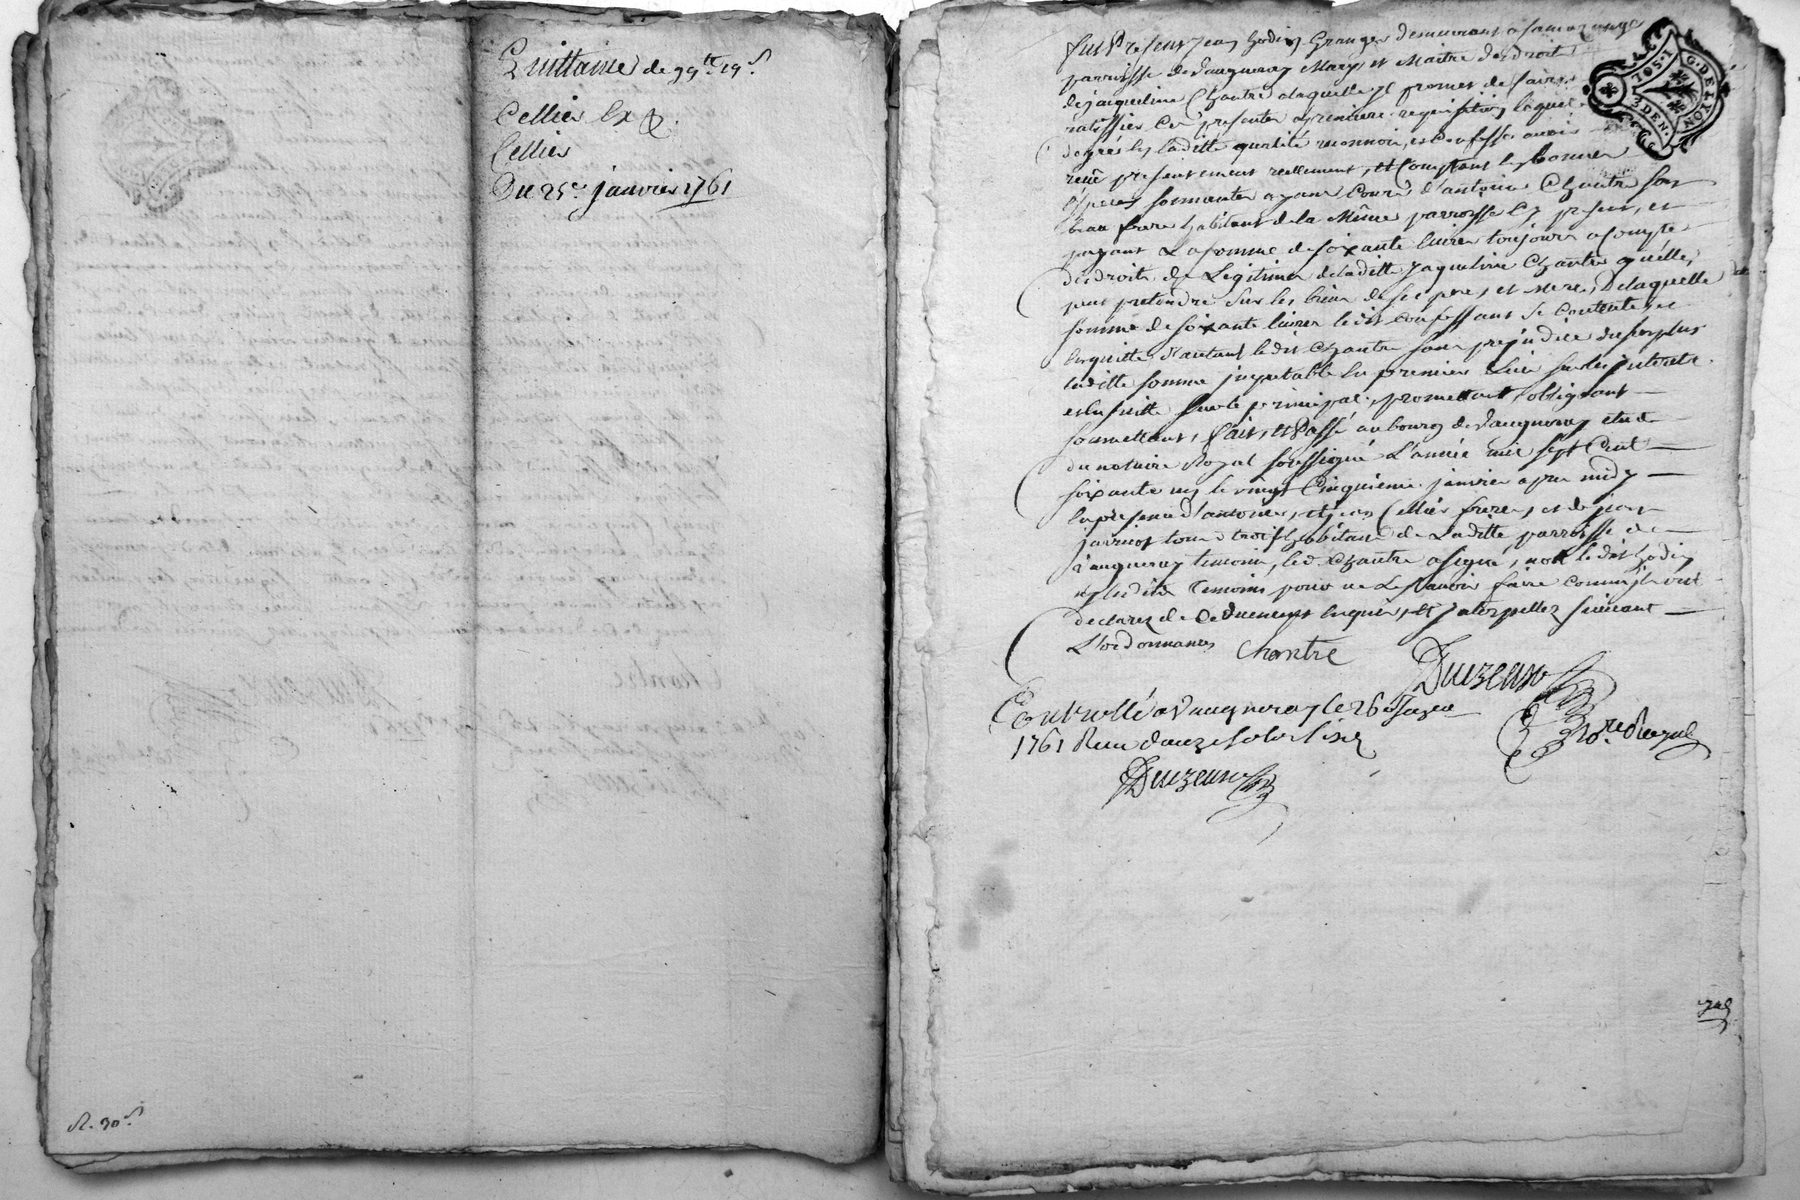 Quittance de 99tt 19s.
Cellier Ex &
Cellier
Du 25e. janvier 1761
R. 30s
G. DE LYON
3 DEN.
fut Present Jean hodin Granger demeurant a
parroisse de Vaugneray Mary, et Maitre des droits
de jacqueline Chantre alaquelle il promet de faire
ratiffier Ces presentes a premiere requisition lequel
degrés en laditte qualité reconnoit, et Confesse avoir
reçu presentement reellement, et Comptant en bonnes
especes sonnantes ayant Cours d'antoine Chantre son
beau frere habitant de la Même parroisse Cy present, et
payant La somme de soixante livres toujours a Compte
des droits de Legitime de laditte Jaqueline Chantre qu'elle
peut pretendre sur les biens de ses pere, et mere, De laquelle
somme de soixante livres ledit Confessant se Contente, et
en quitte d'autant ledit Chantre sans prejudice du surplus
laditte somme imputable en premier Lieu sur les interets
et en suitte sur le principal, promettant, obligeant
soumettant, fait, et Passé au bourg de Vaugneray etude
du notaire Royal soussigné L'année mil sept Cent
soixante un le vingt Cinquieme janvier apres midy
en presence d'antoine, et jean Cellier freres, et de jean
jarricot tous trois habitants de Laditte parroisse de
Vaugneray temoins, led. Chantre a signé, non ledit hodin
ny lesdits Temoins pour ne Le savoir faire Comme ils ont
declarez de Ce duement enquis, et interpellez suivant
L'ordonnance Chantre
Duizeune
Controllé a Vaugneray le 26 Janvier
1761 Reçu douze sols
Nore. Royal
Duizeune